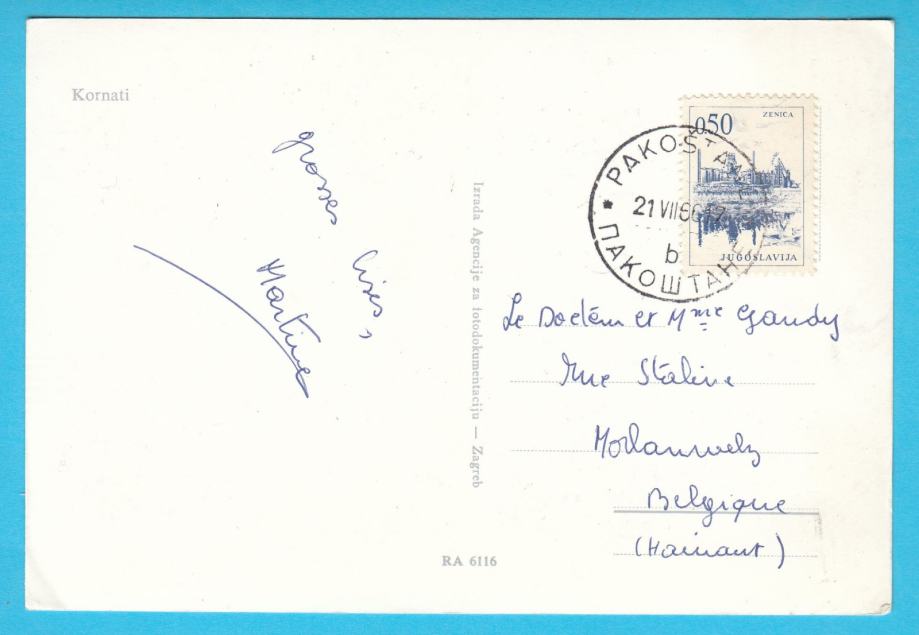 Kornati
grosses
bises,
Martine
Izrada Agencije za fotodokumentaciju — Zagreb
RA 6116
0,50
ZENICA
JUGOSLAVIJA
* PAKOŠTANE
21 VII 66 17
b
ПАКОШТАНЕ
Le Docteur et Mme Gaudy
Rue Staline
Morlanwelz
Belgique
(Hainaut)